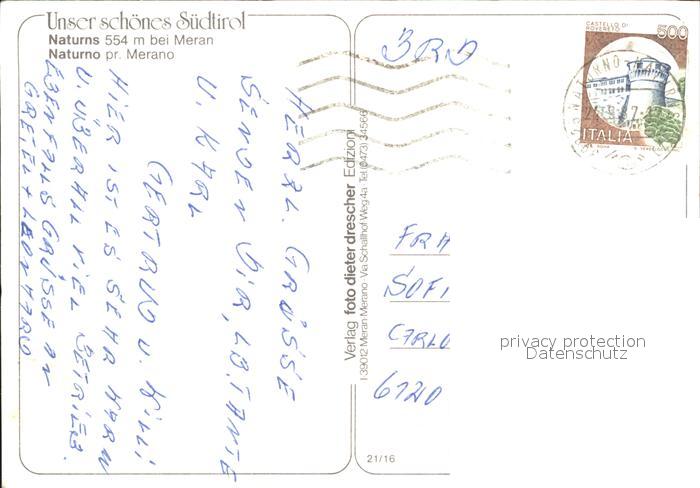 Unser schönes Südtirol
Naturns 554 m bei Meran
Naturno pr. Merano
HERZL. GRÜSSE
SENDEN DIR, LB. TANTE
U. KARL
GERTRUD U. WILLI
HIER IST ES SEHR WARM
U. ÜBERALL VIEL BETRIEB.
EBENFALLS GRÜSSE AN
GRETEL + LEONHARD
Verlag foto dieter drescher Edizioni
I 39012 Meran Merano · Via Schallhof Weg 4a · Tel. (0473) 34566
BRD
CASTELLO DI
ROVERETO
500
ITALIA
FRA
SOFI
CARLO
6120
21/16
privacy protection
Datenschutz